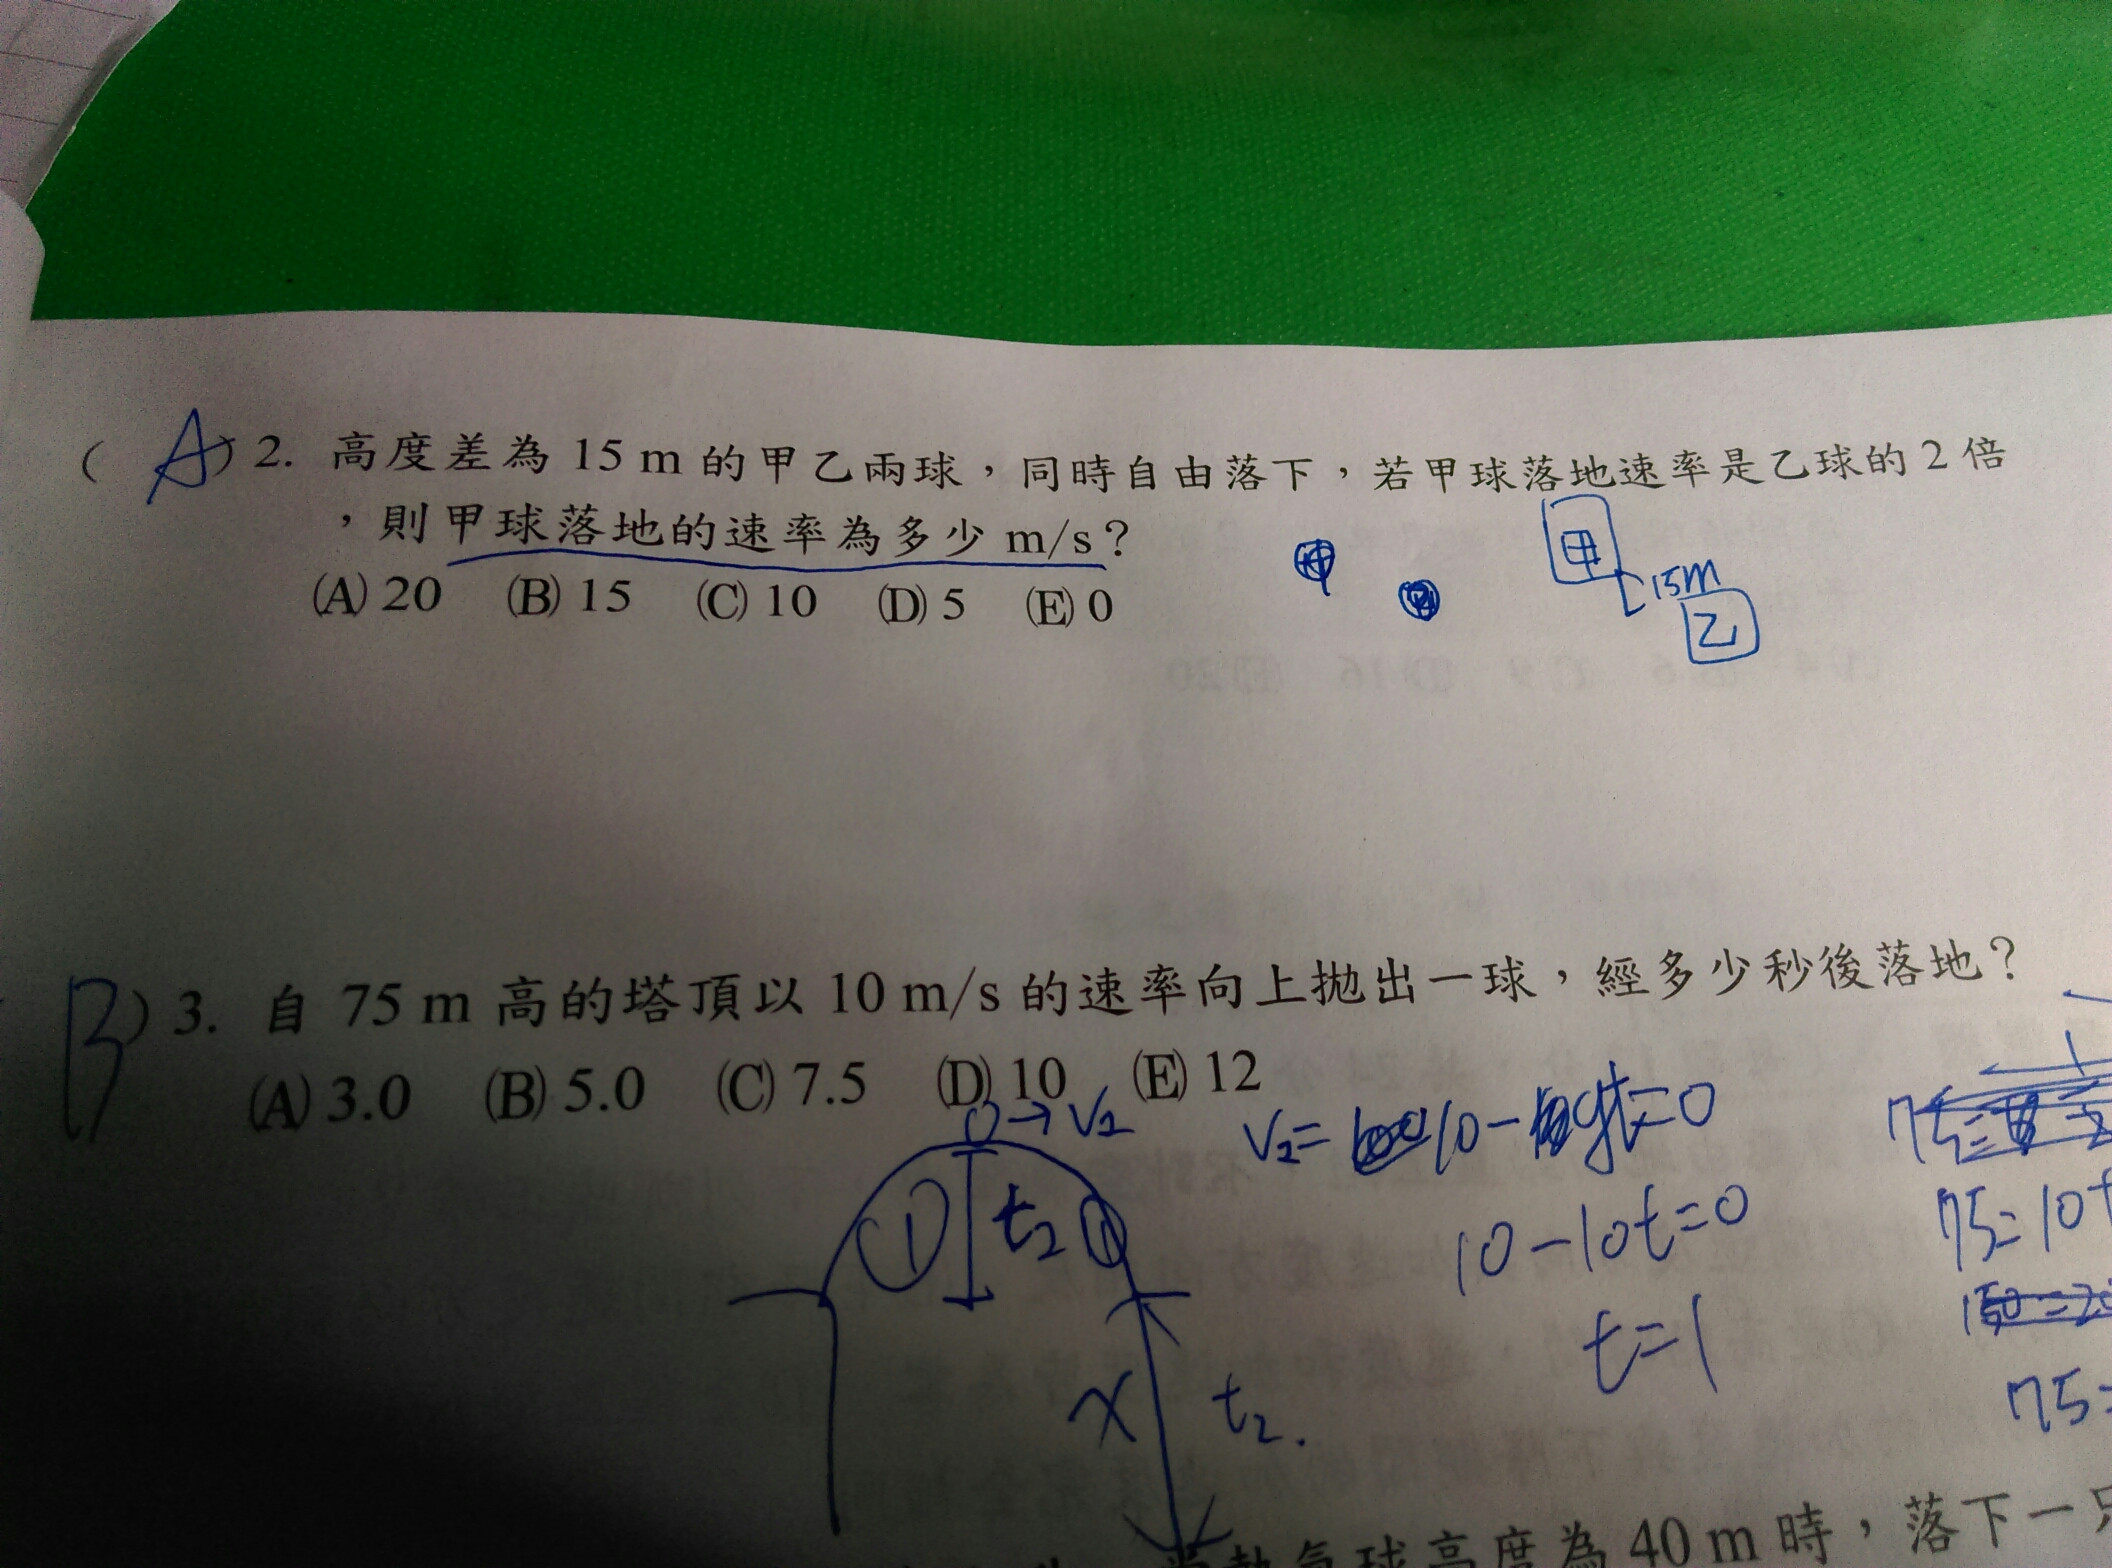 (A) 2. 高度差為 15 m 的甲乙兩球，同時自由落下，若甲球落地速率是乙球的 2 倍
，則甲球落地的速率為多少 m/s？
甲
15m
乙
(A) 20 (B) 15 (C) 10 (D) 5 (E) 0
B) 3. 自 75 m 高的塔頂以 10 m/s 的速率向上拋出一球，經多少秒後落地？
(A) 3.0 (B) 5.0 (C) 7.5 (D) 10 (E) 12
0→V2
V2= 10- gt=0
10-10t=0
t=1
75=10t
75=
1
t2
1
x
t2.
球高度為 40 m 時，落下一只